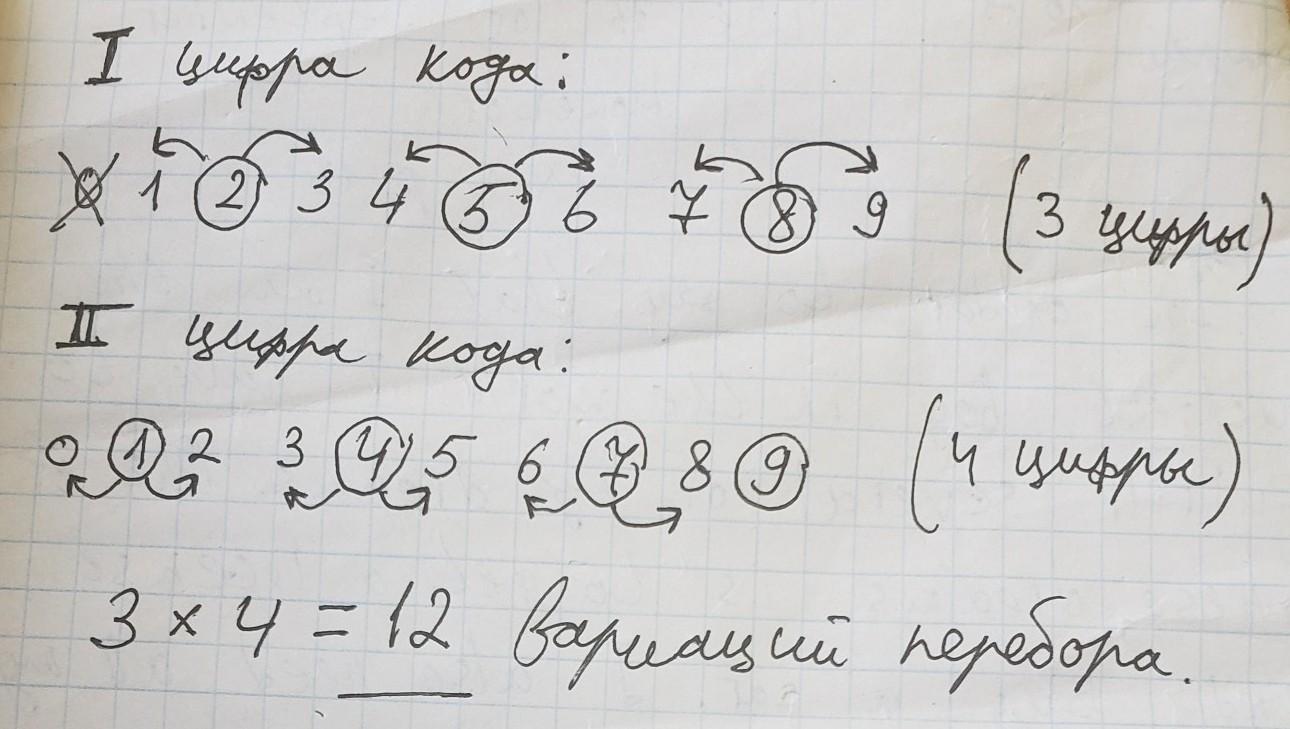 I цифра кода:
0 1 2 3 4 5 6 7 8 9 (3 цифры)
II цифра кода:
0 1 2 3 4 5 6 7 8 9 (4 цифры)
3 × 4 = 12 вариаций перебора.